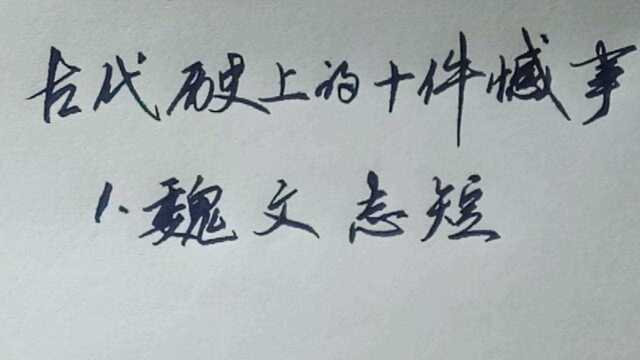 古代历史上的十件憾事
1.魏文志短